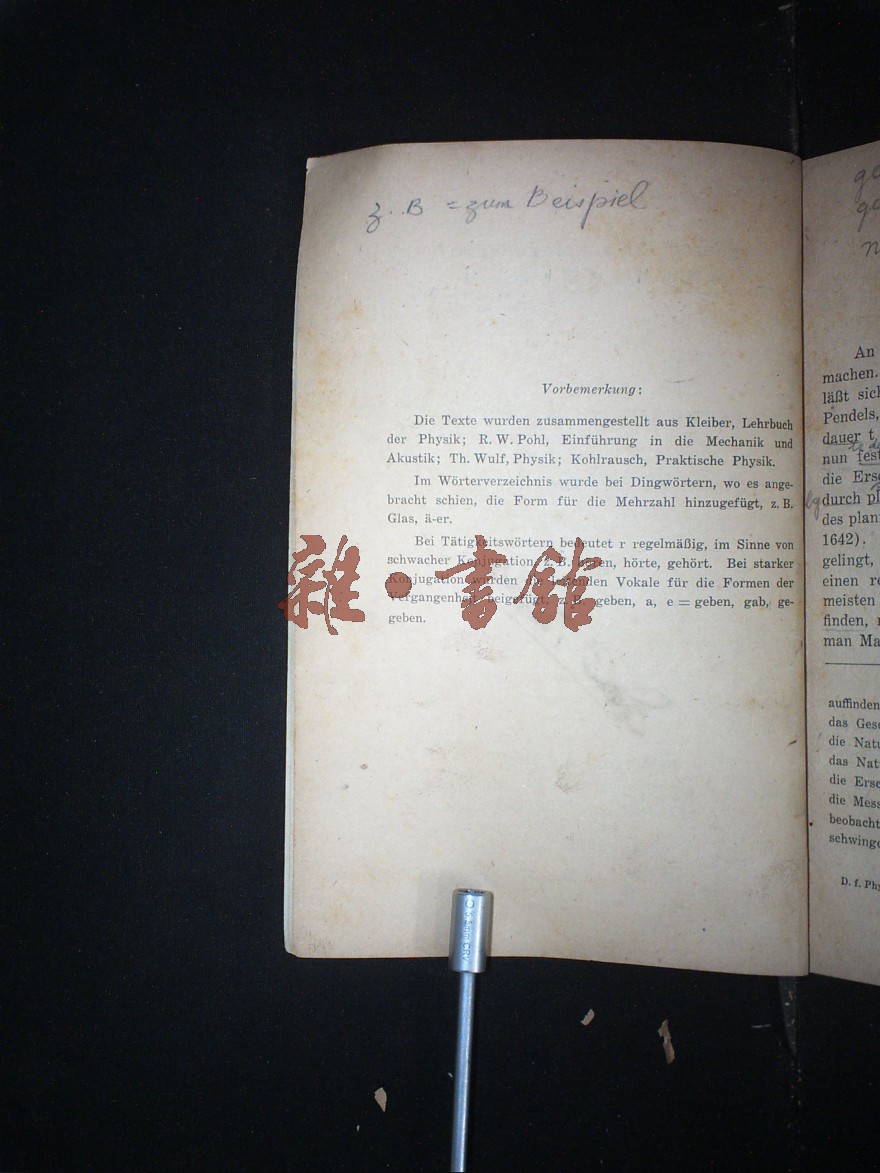 z. B = zum Beispiel
Vorbemerkung:
Die Texte wurden zusammengestellt aus Kleiber, Lehrbuch
der Physik; R. W. Pohl, Einführung in die Mechanik und
Akustik; Th. Wulf, Physik; Kohlrausch, Praktische Physik.
Im Wörterverzeichnis wurde bei Dingwörtern, wo es ange-
bracht schien, die Form für die Mehrzahl hinzugefügt, z. B.
Glas, ä-er.
Bei Tätigkeitswörtern bedeutet r regelmäßig, im Sinne von
schwacher Konjugation, z. B. hören, hörte, gehört. Bei starker
Konjugation wurden die Vokale für die Formen der
Vergangenheit beigefügt, z. B. geben, a, e = geben, gab, ge-
geben.
雜·書館
An
machen.
läßt sich
Pendels,
dauer t,
nun fest
die
durch
des plan
1642).
gelingt,
einen
meisten
finden,
man Ma
auffinden
das
die Natu
das Nat
die Ersc
die Mess
beobacht
schwing
D. f.